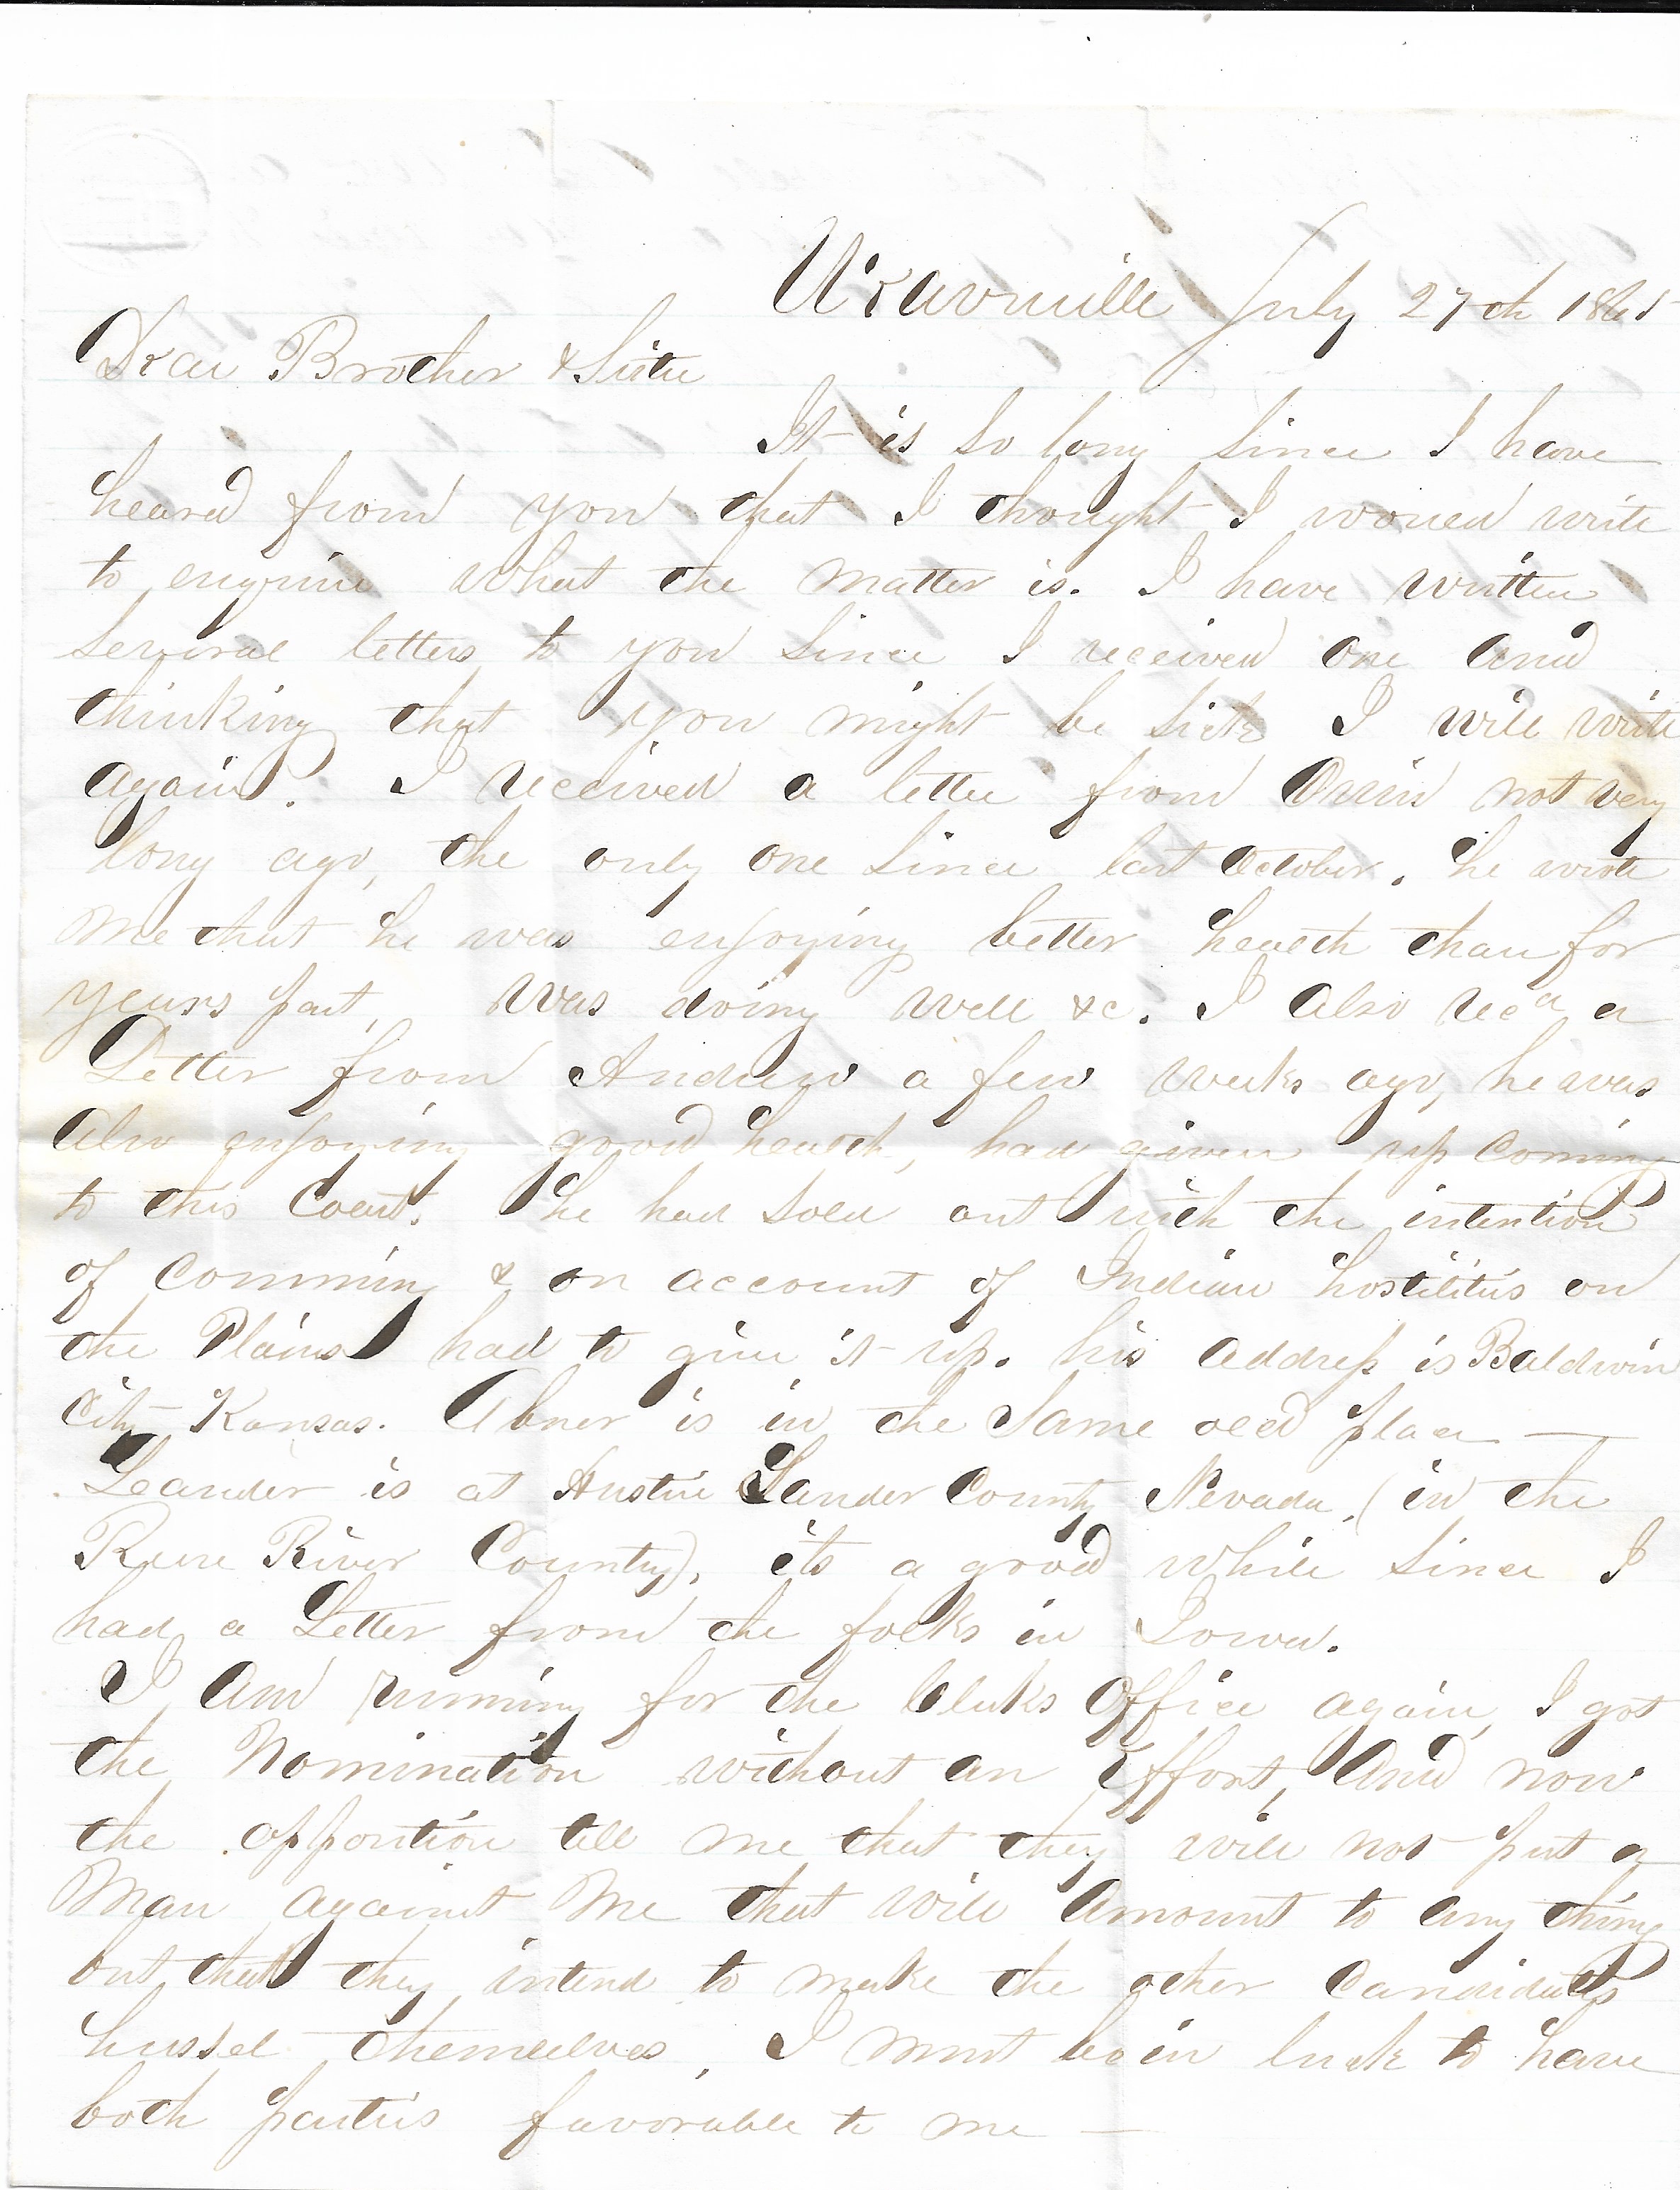 Weaverville July 27th 1865
Dear Brother & Sister
It is so long since I have
heard from you that I thought I would write
to enquire what the matter is. I have written
several letters to you since I received one and
thinking that you might be sick I will write
again. I received a letter from Orrin not very
long ago, the only one since last October. he wrote
me that he was enjoying better health than for
years past, was doing well &c. I also recd a
Letter from Andrew a few weeks ago, he was
also enjoying good health, had given up coming
to this Coast. he had sold out with the intention
of comming & on account of Indian hostilitis on
the Plains had to give it up. his address is Baldwin
City Kansas. Abner is in the same old place —
Leander is at Austin Lander County Nevada, (in the
Reese River County), its a good while since I
had a Letter from the folks in Iowa.
I am running for the Clerks Office again, I got
the Nomination without an Effort, and now
the opposition tell me that they will not put a
Man against me that will amount to any thing
but that they intend to make the other Candidates
hussel themselves, I must be in luck to have
both partis favorable to me —